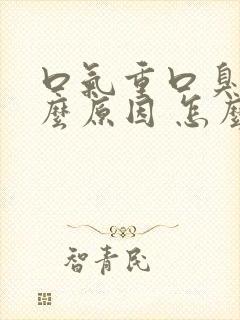 口氣重口臭
麼原因 怎麼
智青民